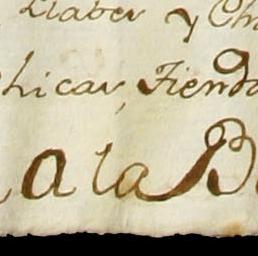 Llaber y Ch
hicar, Fiend
a la B